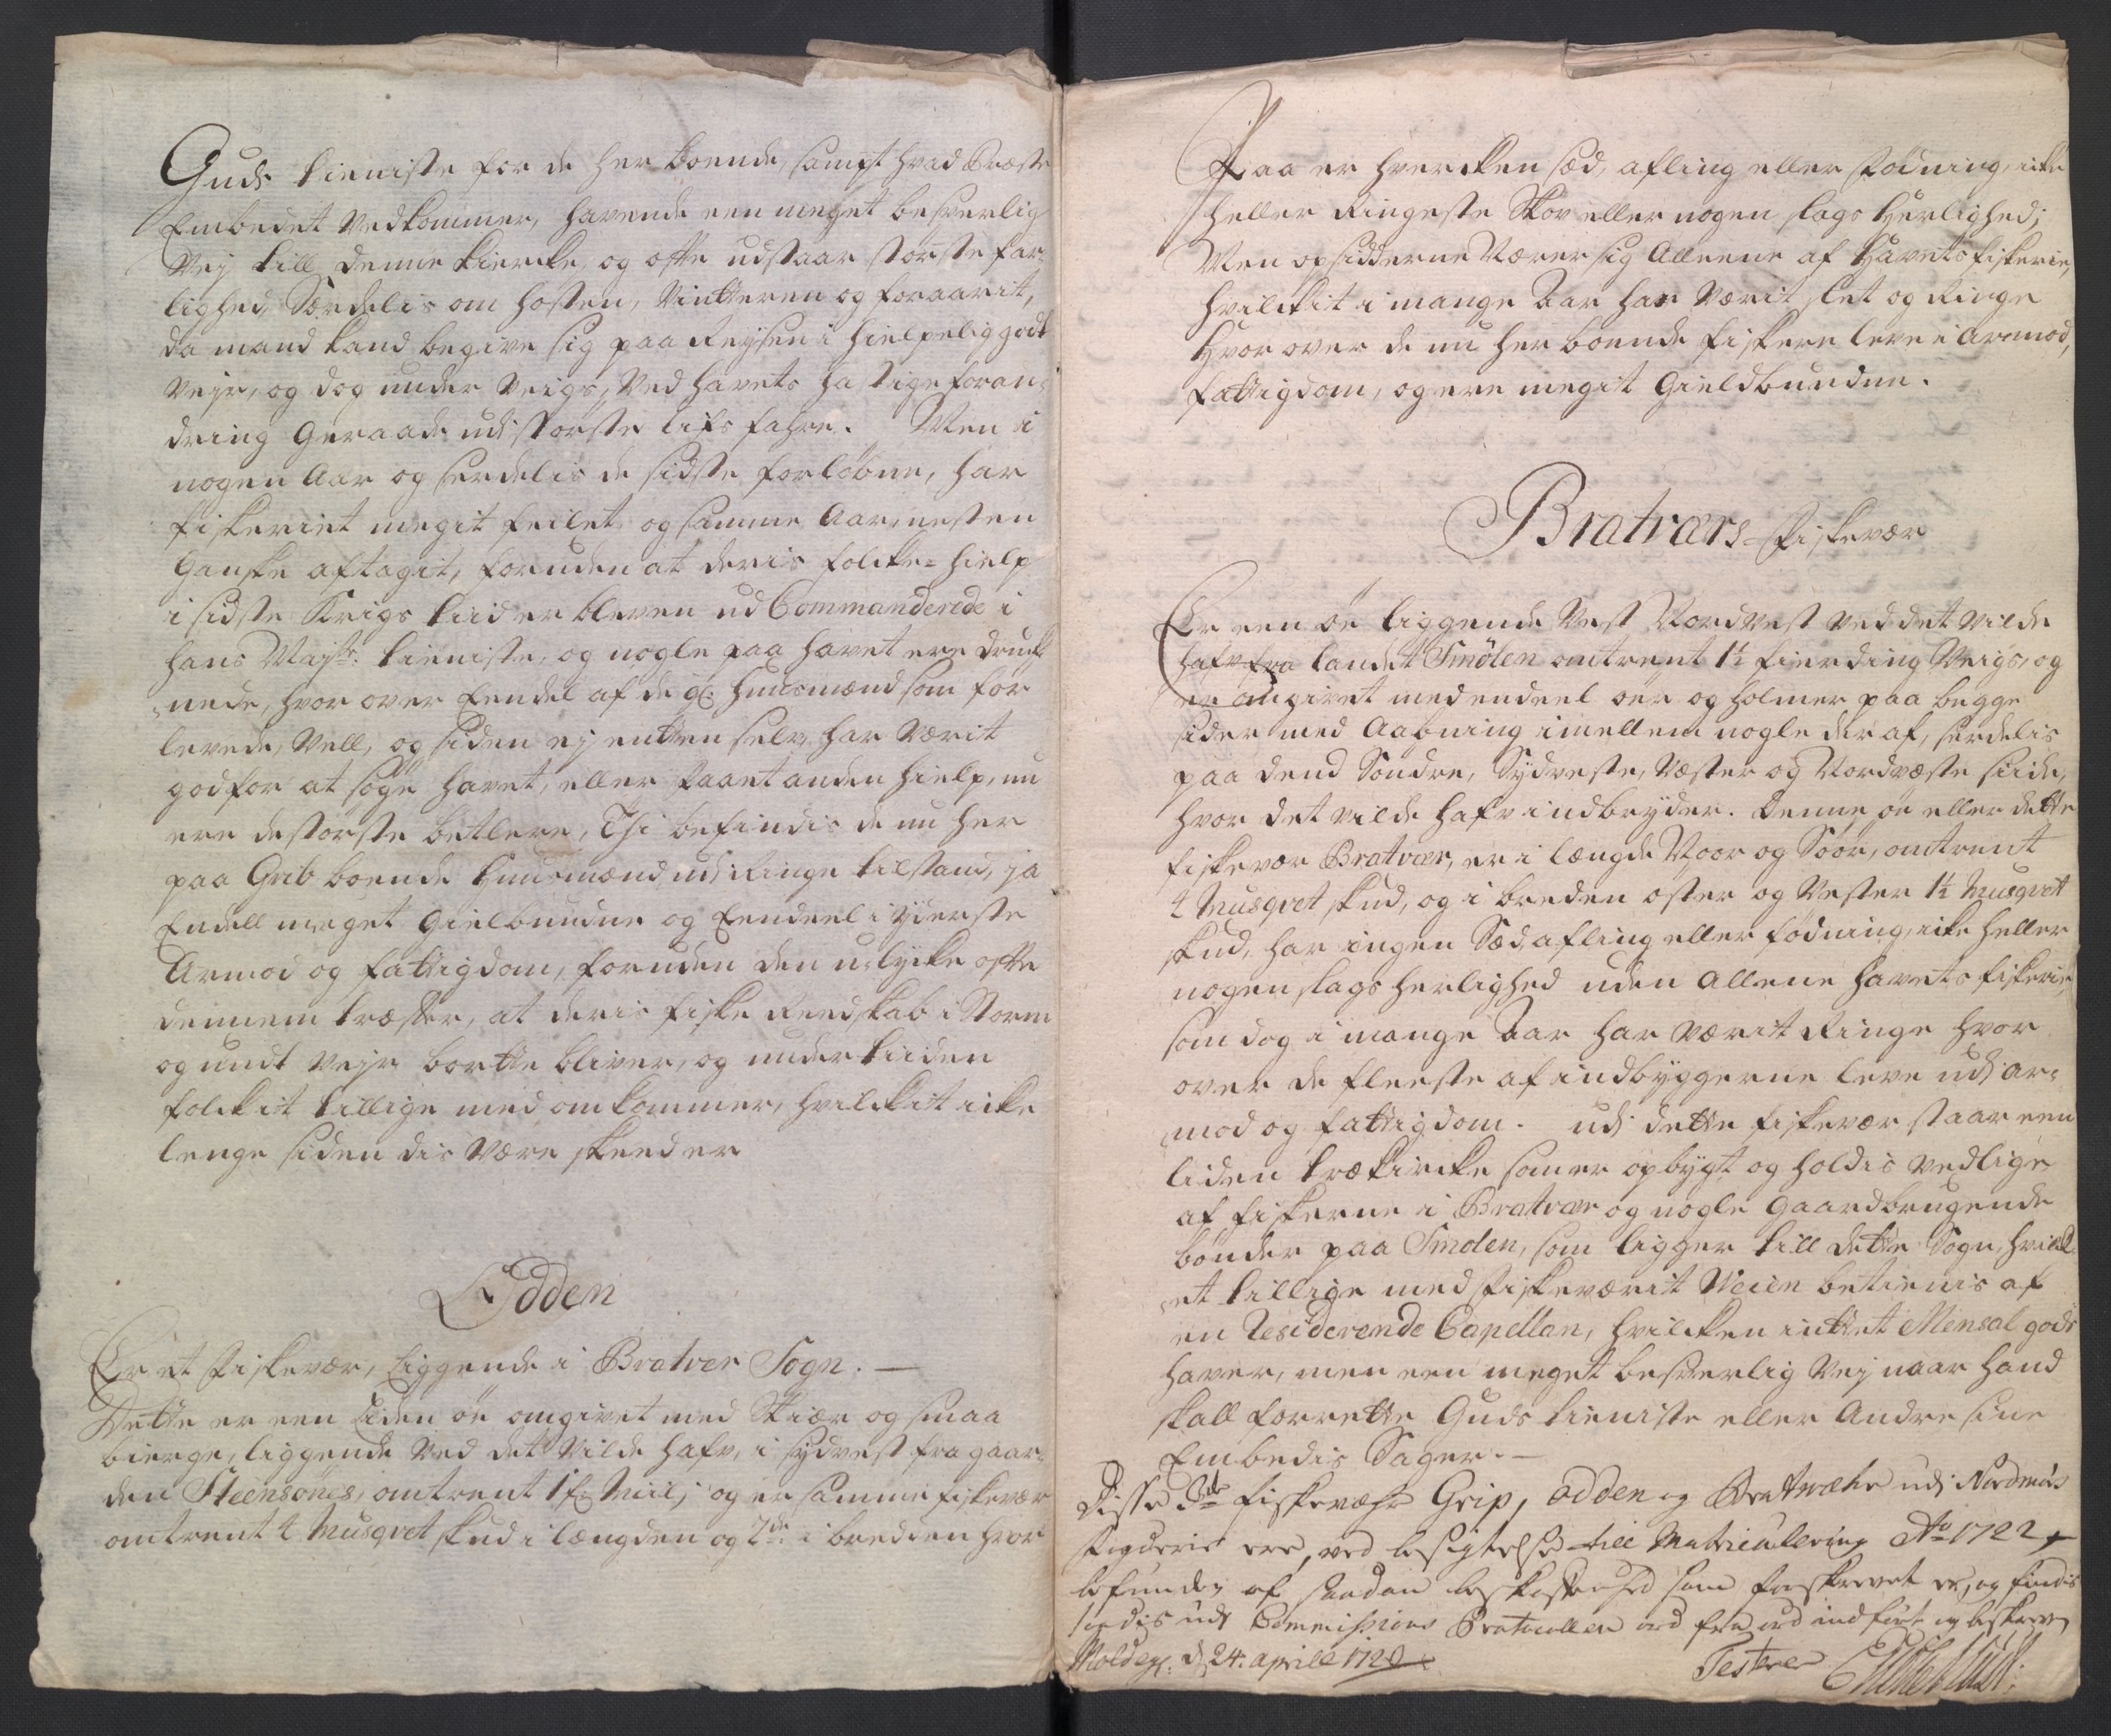 Guds tieniste for de her boende, sampt hvad Præste
Embedet vedkommer, havende een meget besverlig
Vej till denne kiercke, og offte udstaar største far-
lighed, Særdelis om høsten, Vintteren og foraarit,
da mand kand begive sig paa Reysen i hielpelig godt
Vejr, og dog under Veigs, Ved havets hastige foran-
dring Geraade udi største lifs fahre. Men i
nogen Aar og serdelis de sidste forløbne, har
fiskeriet megit feilet, og samme Aar, nesten
Ganske aftagit, foruden at deris folcke-hielp
i sidste Krigs tiid er bleven ud Commanderede i
hans Mayts: tieniste, og nogle paa havet ere druck-
nede, hvor over Eendel af de gl: huusmænd som for
levede, Vell, og siden ej entten selv har værit
god for at søge havet, eller faaet anden hielp, nu
ere de største betlere, Thi befindis de nu her
paa Grib boende huusmænd, udi Ringe tilstand, ja
Endell meget Gielbundne og Eendeel i yderste
Armod og fattigdom, foruden den u-lycke offte
dennem træffer, at deris fiske Reedskab i Storm
og undt Vejr bortte bliver, og under tiiden
folckit tillige med omkommer, hvilckit icke
lenge siden dis Være skeed er
Odden
Er et fiskevær, liggende i Bratver Sogn. —
Dette er een Liden øe omgivet med Skiær og smaa
bierge, liggende Ved det Vilde hafv, i sydvest fra gaar-
den Steensønes, omtrent 1 f: Miil, og er samme fiskevær
omtrent 4 Musqvet skud i længden og 2de i bredden hvor
Paa er hvercken sæd, afling eller fødning, icke
heller Ringeste Skov eller nogen slags Herlighed;
Men opsidderne Nærer sig Alleene af Havets fiskerie,
hvilckit i mange Aar har Værit slet og Ringe
Hvor over de nu her boende fiskere leve i Armod,
fattigdom, og ere megit Gieldbunden.
Bratværs-Fiskevær
Er een øe liggende Vest Nordvest ved det vilde
hafv fra landet Smølen omtrent 1½ fierding Veigs, og
er omgivet med endeel øer og holmer paa begge
sider med Aabning imellem nogle der af, serdelis
paa dend Søndre, Sydveste, Væster og Nordvæste siide,
hvor det vilde hafv indbryder. Denne øe eller dette
fiskevær Bratvær, er i længde Noor og Søør, omtrent
4 Musqvet skud, og i breden øster og Vester 1½ Musqvet
skud, har ingen Sæd, afling eller fødning, icke heller
nogen slags herlighed uden Allene havets fiskerie,
som dog i mange Aar har værit Ringe hvor
over de fleeste af indbyggerne leve udi ar-
mod og fattigdom. udi dette fiskevær staar een
liden træ kircke som er opbygt og holdis vedlige
af fiskerne i Bratvær og nogle gaardbrugende
bønder paa Smølen, som ligger till dette Sogn, hvilck-
et tillige med fiskeværit Veien betienis af
en Residerende Capellan, hvilcken inttet Mensal gods
haver, men een meget besverlig Vej naar hand
skall forrette Guds tieniste eller Andre sine
Embedis Sager. —
Disse 3de fiskevæhr Grip, Odden og Bratvæhr udi Nordmørs
Fogderie ere, ved besigtelse till Matriculering Ao 1722
befunden af saadan beskaffenhed som forskrevet er, og findis
ligedis udi Commissions Protocollen ord fra ord indført og beskreven
Molde d. 24. aprill 1720
Testerer